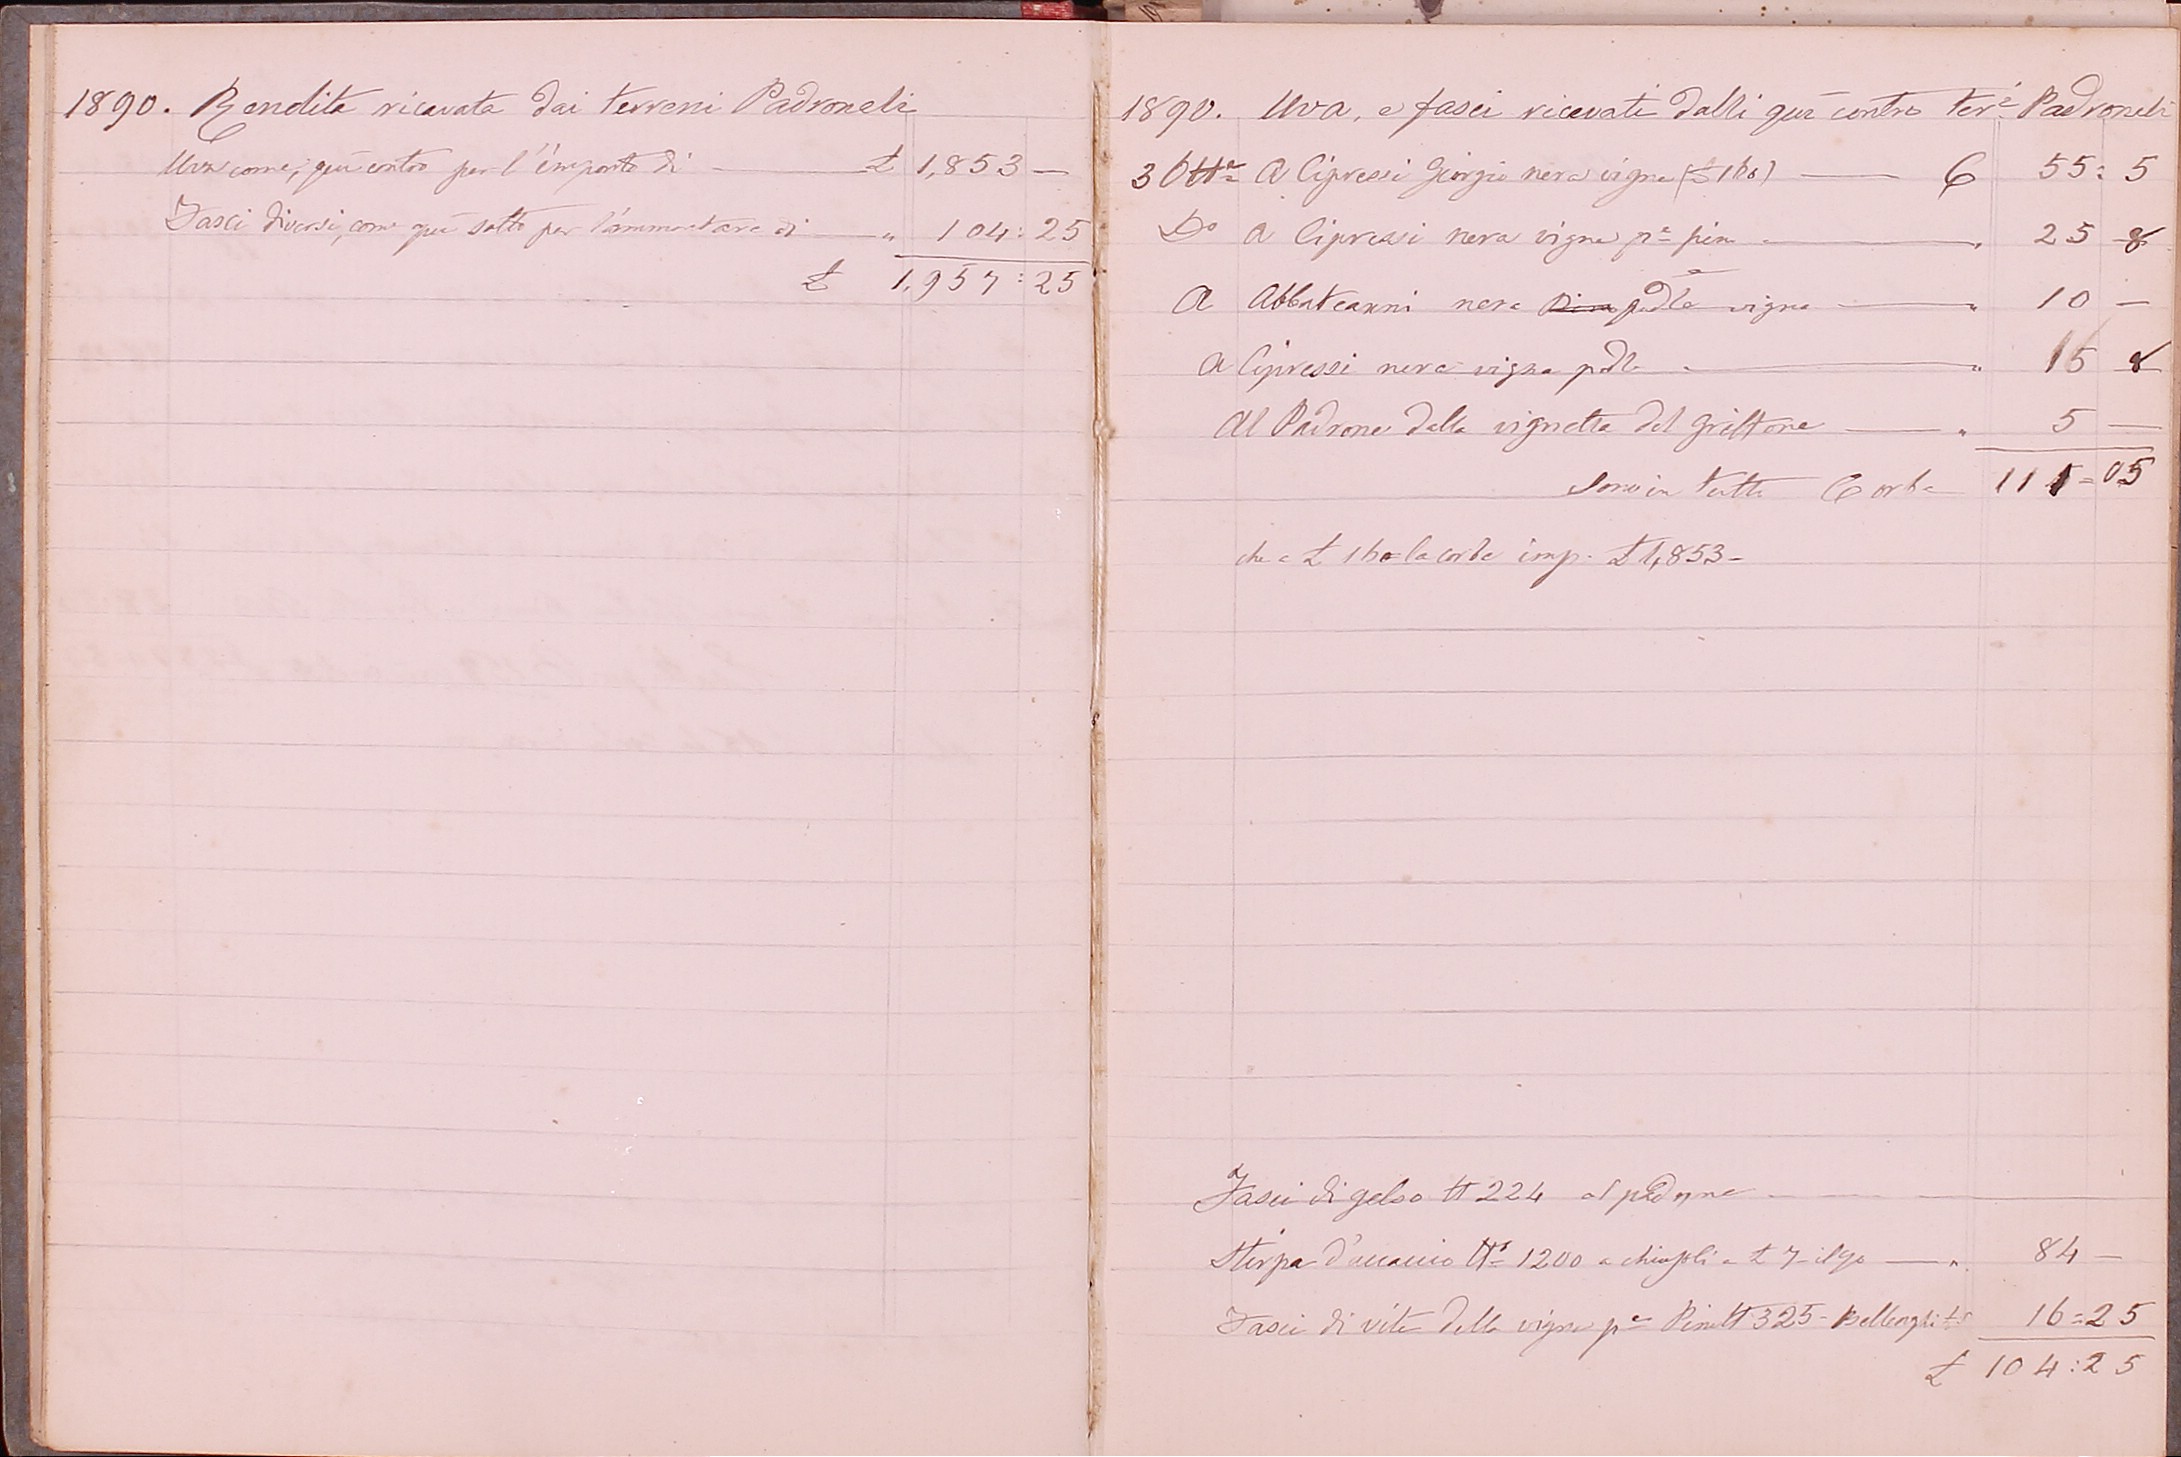 1890. Rendita ricavata dai terreni Padronali
Uva come, quì contro per l'importo di £ 1,853 —
Fasci diversi, come quì sotto per l'ammontare di " 104:25
£ 1,957:25
1890. Uva, e fasci ricavati dalli quì contro ter.i Padronali
3 Ott.e A Cipressi Giorgio nera vigna C 55:5
D.o A Cipressi nera vigna p.a " 25 8
A Abbateanni nera padle vigna " 10 —
A Cipressi nera vigna pdle " 15 8
Al Padrone dalla vignetta del Griffone " 5 —
Sono in tutto Corbe 111=05
che a £ la corba imp. £ 1,853 —
Fasci di gelso N 224 al padrone
Sterpa d'accacio N.o 1200 a £ 7 il % " 84 —
Fasci di vite della vigna p.a Pini N 325 - 16=25
£ 104:25